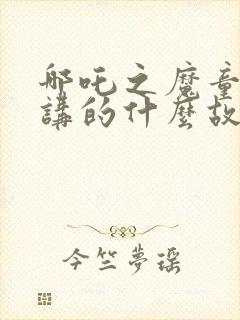 哪吒之魔童
講的什麼故
今竺夢瑶